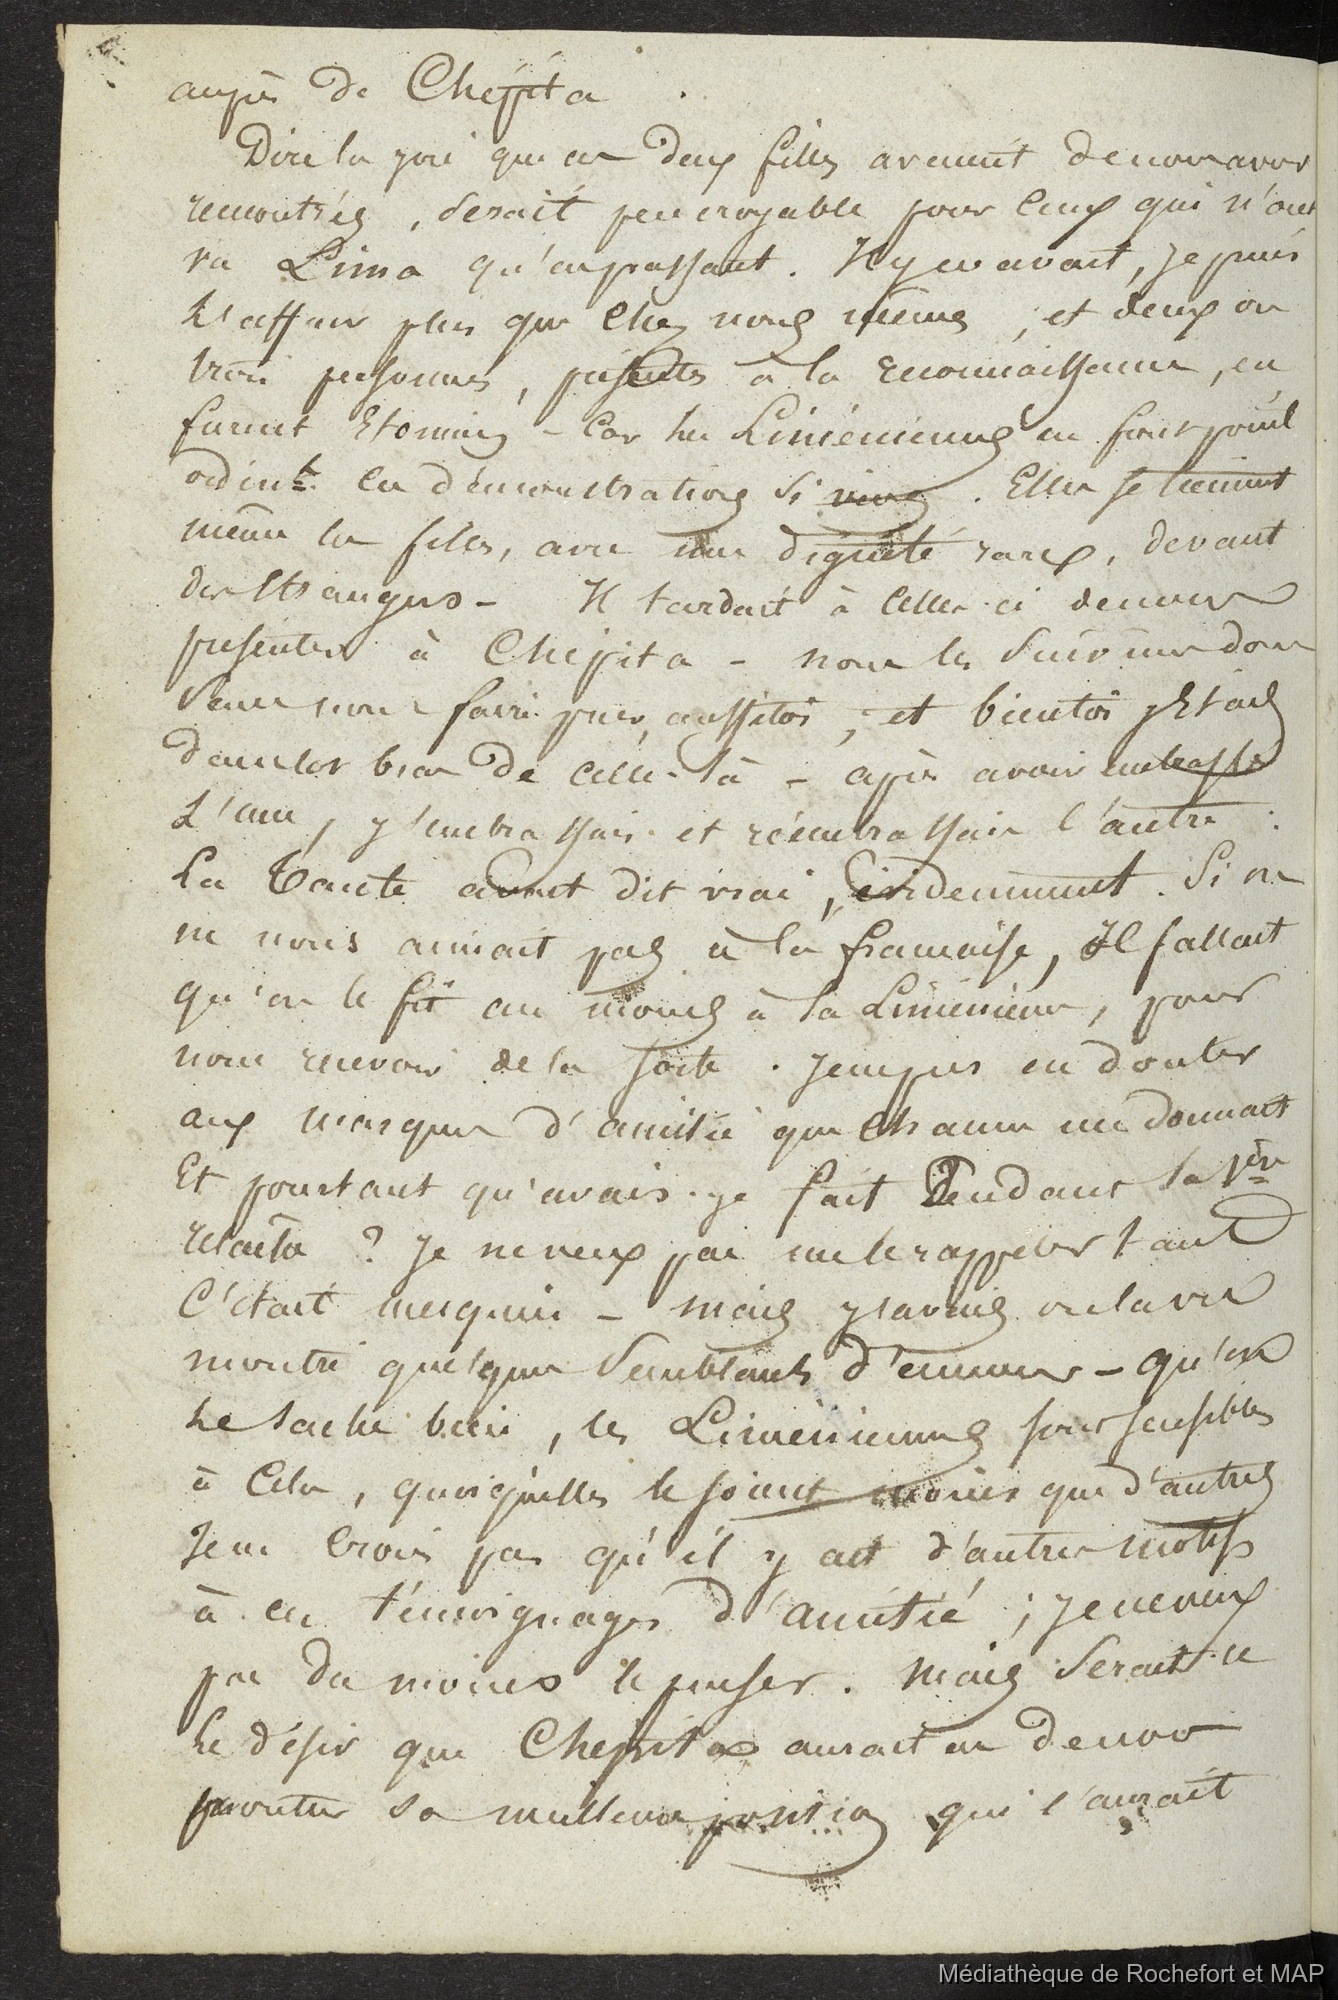 auprès de Chépita.
Dire la joie que ces deux filles avaient de nous avoir
rencontrés, serait peu croyable pour ceux qui n'ont
vu Lima qu'en passant. Il y en avait, je puis
l'affirmer plus que chez nous même, et deux ou
trois personnes, présentes à la reconnaissance, en
furent étonnées – Car les Liméniennes ne font pour l'
ordin.re ces démonstrations si vives. Elles se tiennent
même les filles, avec une dignité rare, devant
des étrangers – Il tardait à celles-ci de nous
présenter à Chépita – nous les suivîmes donc
sans nous faire prier, aussitôt, et bientôt j'étais
dans les bras de celle-là – après avoir embrassé
l'une, j'embrassais et réembrassais l'autre.
La Tante avait dit vrai, évidemment. Si on
ne nous aimait pas à la française, il fallait
qu'on le fît au moins à la Liménienne, pour
nous recevoir de la sorte. Je ne pus en douter
aux marques d'amitié que chacune me donnait
Et pourtant qu'avais-je fait Pendant la 1ère
relache ? Je ne veux pas me le rappeler tant
C'était mesquin – mais j'avais
montré quelques semblants d'amour – qu'on
le sache bien, les Liméniennes sont sensibles
à cela, quoiqu'elles le soient moins que d'autres
Je ne crois pas qu'il y ait d'autres motifs
à ces témoignages d'amitié ; je ne veux
pas du moins le penser. Mais serait-ce
le désir que Chépita aurait eu de nous
montrer sa meilleure position qui l'aurait
Médiathèque de Rochefort et MAP